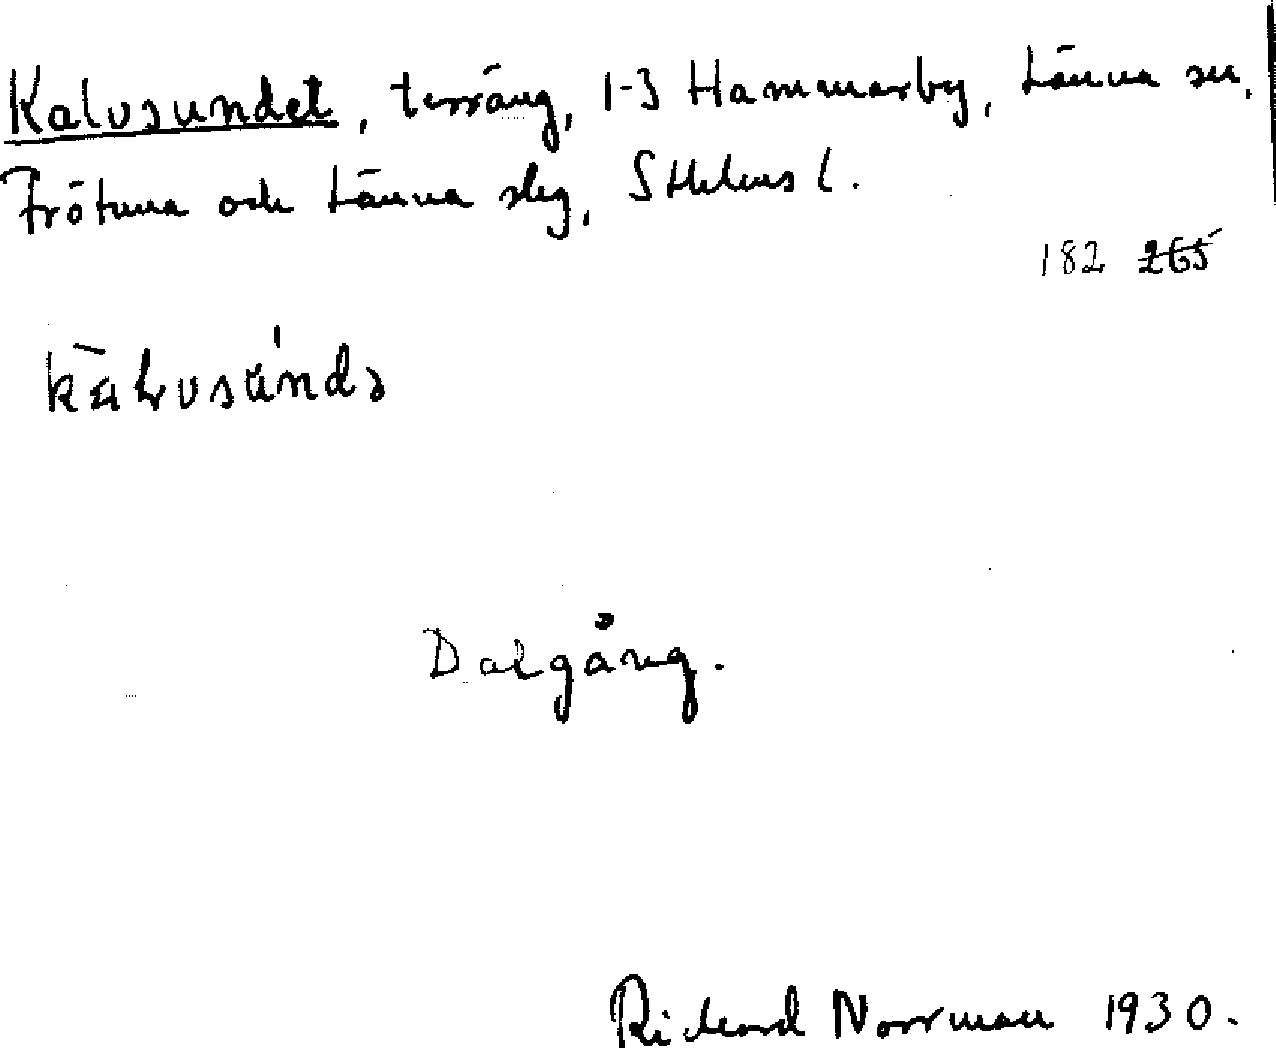 Kalvsundet, terräng, 1-3 Hammarby, Länna sn,
Frötuna och Länna slg, Sthlms l.
182 265
Dalgång.
Richard Norrman 1930.